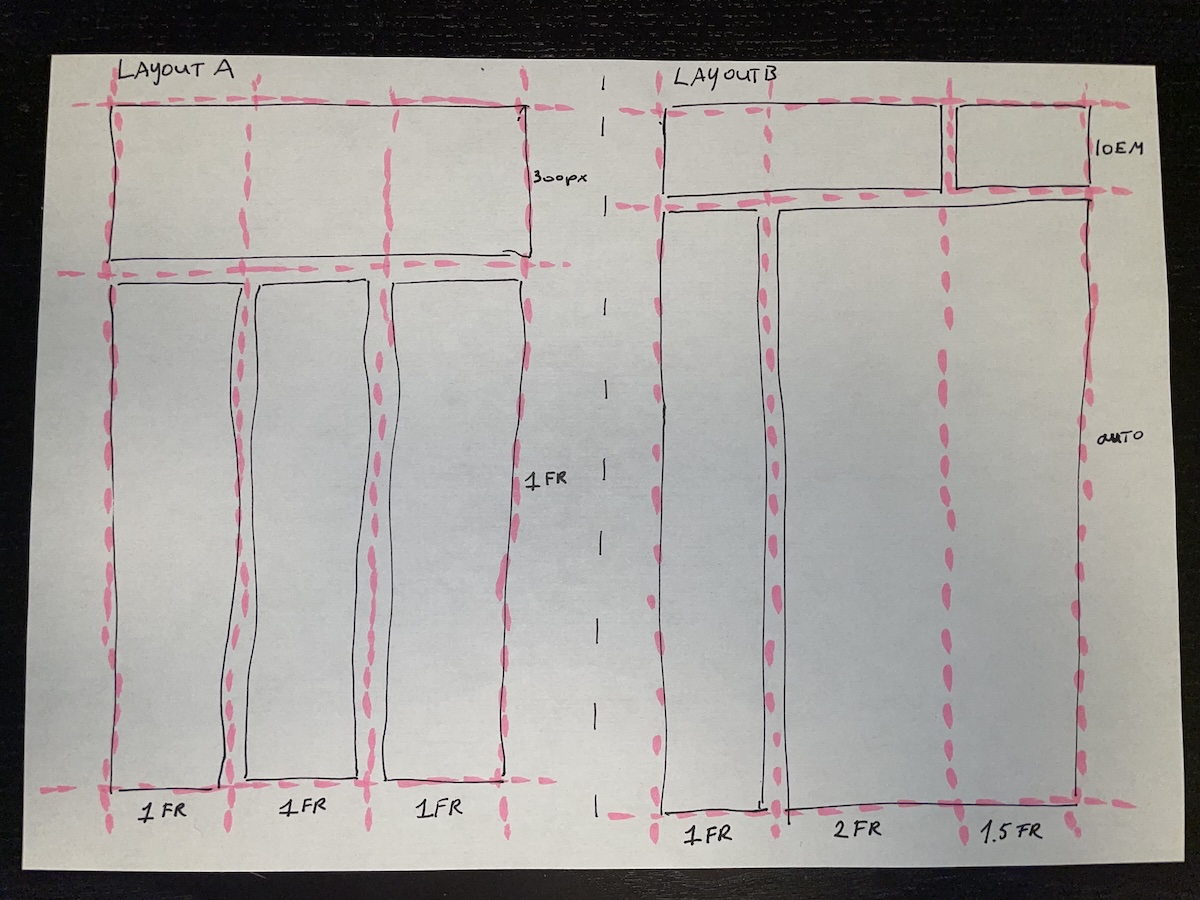 LAYOUT A
300px
1 FR
1 FR
1 FR
1 FR
LAYOUT B
10EM
auTO
1 FR
2 FR
1.5 FR